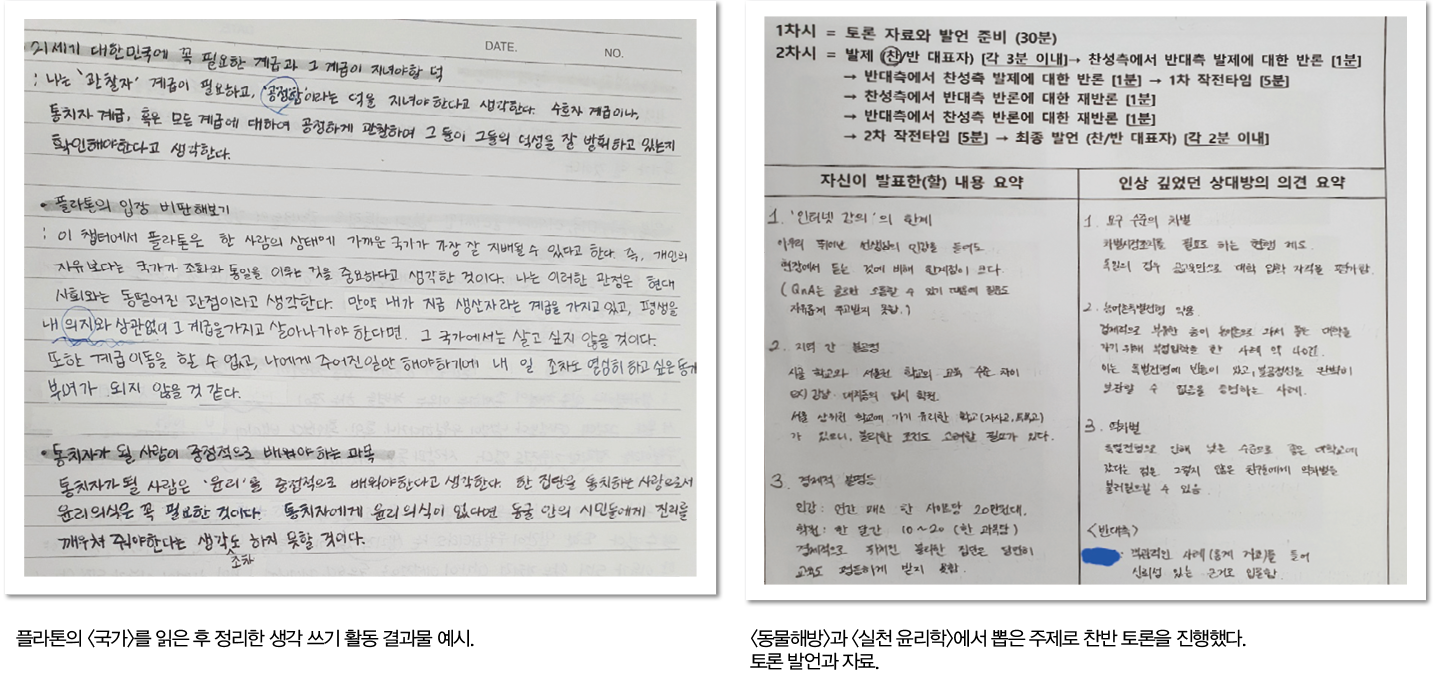 DATE.
NO.
21세기 대한민국에 꼭 필요한 계급과 그 계급이 지녀야할 덕
: 나는 '관찰자' 계급이 필요하고, '공정함'이라는 덕을 지녀야 한다고 생각한다. 수호자 계급이나,
통치자 계급, 혹은 모든 계급에 대하여 공정하게 관찰하여 그들이 그들의 덕성을 잘 발휘하고 있는지
확인해야한다고 생각한다.
• 플라톤의 입장 비판해보기
: 이 챕터에서 플라톤은 한 사람의 상태에 가까운 국가가 가장 잘 지배될 수 있다고 한다. 즉, 개인의
자유보다는 국가가 조화와 통일을 이루는 것을 중요하다고 생각한 것이다. 나는 이러한 관점은 현대
사회와는 동떨어진 관점이라고 생각한다. 만약 내가 지금 생산자라는 계급을 가지고 있고, 평생을
내 의지와 상관없이 그 계급을 가지고 살아나가야 한다면, 그 국가에서는 살고 싶지 않을 것이다.
또한 계급이동을 할 수 없고, 나에게 주어진 일만 해야하기에 내 일 조차도 열심히 하고 싶은 동기
부여가 되지 않을 것 같다.
• 통치자가 될 사람이 중점적으로 배워야 하는 과목
통치자가 될 사람은 '윤리'를 중점적으로 배워야한다고 생각한다. 한 집단을 통치하는 사람으로서
윤리의식은 꼭 필요한 것이다. 통치자에게 윤리의식이 없다면 동굴 안의 시민들에게 진리를
깨우쳐 줘야한다는 생각도 하지 못할 것이다.
조차
플라톤의 〈국가〉를 읽은 후 정리한 생각 쓰기 활동 결과물 예시.
1차시 = 토론 자료와 발언 준비 (30분)
2차시 = 발제 (찬/반 대표자) [각 3분 이내]→ 찬성측에서 반대측 발제에 대한 반론 [1분]
→ 반대측에서 찬성측 발제에 대한 반론 [1분] → 1차 작전타임 [5분]
→ 찬성측에서 반대측 반론에 대한 재반론 [1분]
→ 반대측에서 찬성측 반론에 대한 재반론 [1분]
→ 2차 작전타임 [5분] → 최종 발언 (찬/반 대표자) [각 2분 이내]
자신이 발표한(할) 내용 요약
1. '인터넷 강의'의 한계
아무리 뛰어난 선생님의 인강을 들어도
현장에서 듣는 것에 비해 한계점이 크다.
(QnA는 글로만 소통할 수 있기 때문에 질문도
자유롭게 주고받지 못함.)
2. 지역 간 불균형
시골 학교와 서울권 학교의 교육 수준 차이
ex) 강남·대치동의 입시 학원.
서울 상위권 학교에 가기 유리한 학교(자사고, 특목고)
가 있으니, 불리한 조건도 고려할 필요가 있다.
3. 경제적 불평등
인강: 인강 패스 한 사이트당 20만원대.
학원: 한 달간 10~20 (한 과목당)
경제적으로 취약한 불리한 집단은 당연히
교육도 평등하게 받지 못함.
인상 깊었던 상대방의 의견 요약
1. 요구 수준의 차별
차별시정조치를 필요로 하는 현행 제도.
독일의 경우 공교육만으로 대학 입학 자격을 평가함.
2. 농어촌특별전형 악용
경제적으로 부유한 층이 농어촌으로 가서 좋은 대학을
가기 위해 부정입학을 한 사례 약 40건.
이는 특별전형에 빈틈이 있고, 불공정성을 완벽히
보완할 수 없음을 증명하는 사례.
3. 역차별
특별전형으로 인해 낮은 수준으로 좋은 대학교에
갔다는 점은 그렇지 않은 학생에게 역차별을
불러일으킬 수 있음.
<반대측>
객관적인 사례(통계 자료)를 들어
신뢰성 있는 근거로 입증함.
〈동물해방〉과 〈실천 윤리학〉에서 뽑은 주제로 찬반 토론을 진행했다.
토론 발언과 자료.